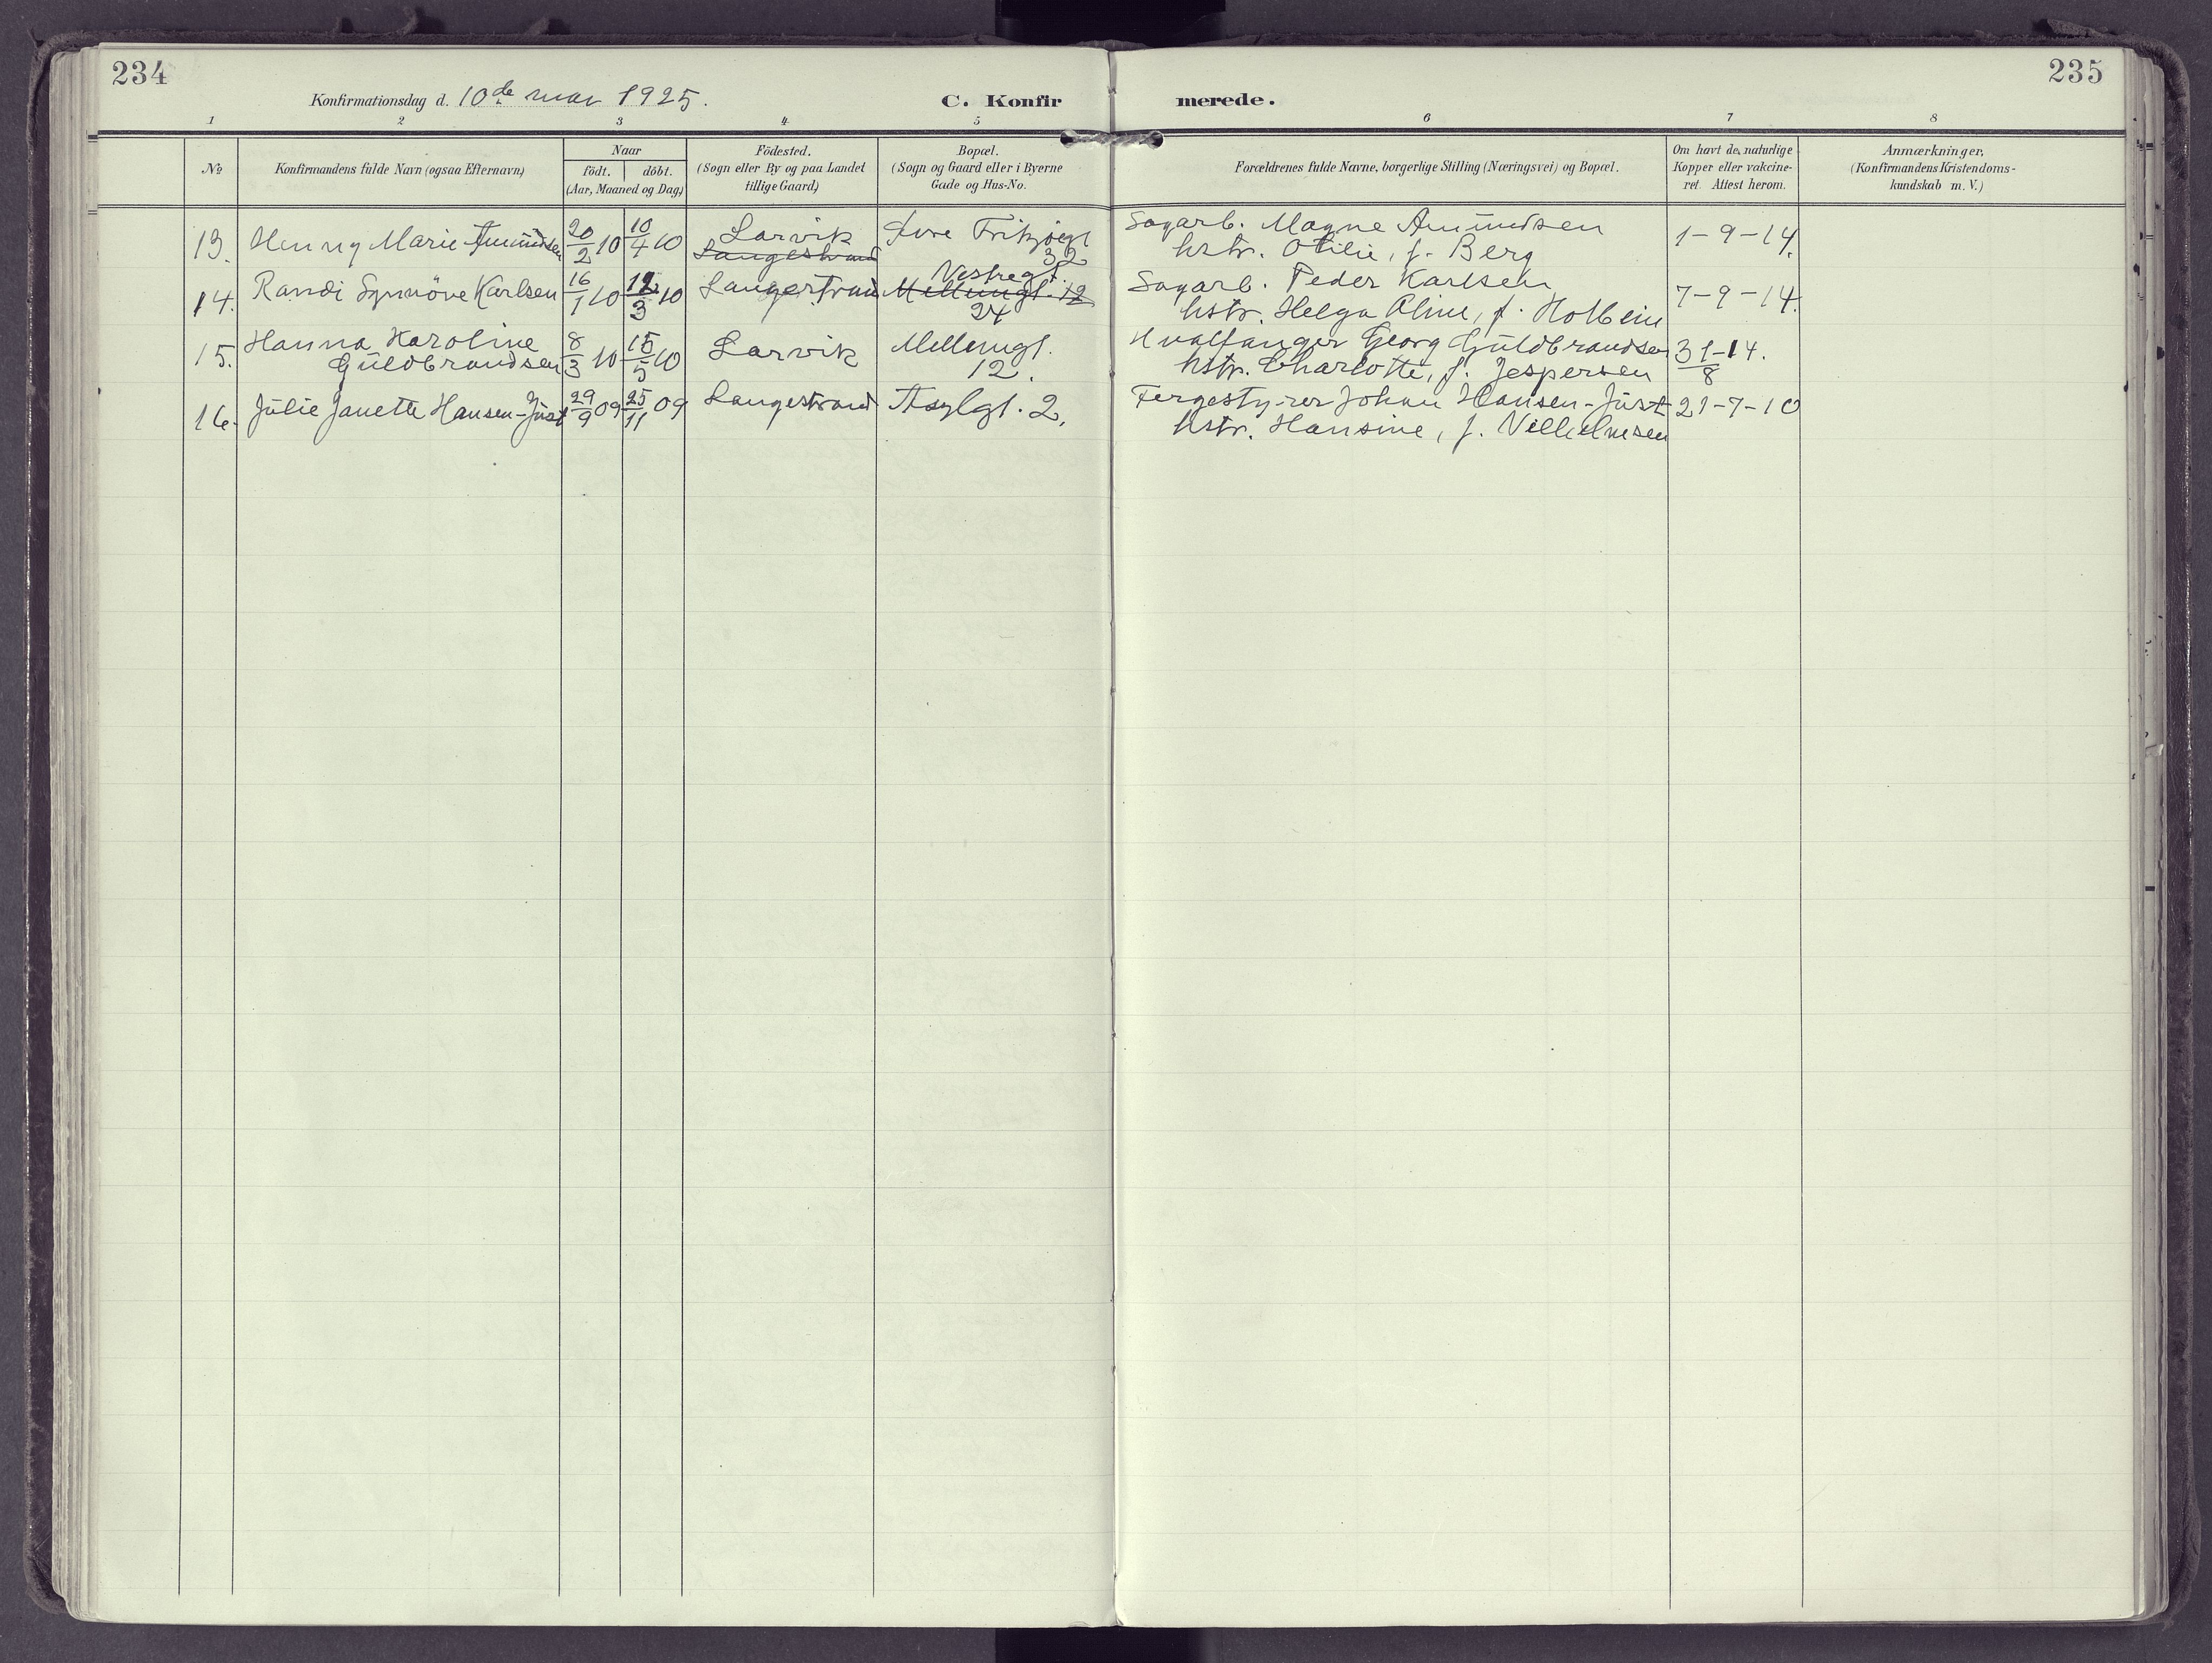 234
235
Konfirmationsdag d. 10de mai 1925.
C. Konfirmerede.
1 2 3 4 5 6 7 8
№
Konfirmandens fulde Navn (ogsaa Efternavn)
Naar
födt. döbt.
(Aar, Maaned og Dag)
Födested.
(Sogn eller By og paa Landet
tillige Gaard)
Bopæl.
(Sogn og Gaard eller i Byerne
Gade og Hus-No.
Forældrenes fulde Navne, borgerlige Stilling (Næringsvei) og Bopæl.
Om havt de naturlige
Kopper eller vakcine-
ret Attest herom.
Anmærkninger,
(Konfirmandens Kristendoms-
kundskab m. V.)
13. Henny Marie Amundsen 20/2 10 10/4 10 Larvik
Langestrand
Fritzøegt
32
Sagarb. Magne Amundsen
hstr. Otilie, f. Berg
1-9-14.
14. Randi Synnöve Karlsen 16/1 10 12/3 10 Langestrand
Vestregt.
Mellemgt. 12
24
Sagarb. Peder Karlsen
hstr. Helga Aline, f. Holbein
7-9-14.
15. Hanna Karoline
Guldbrandsen 8/3 10 15/5 10 Larvik
Mellemgt.
12.
Hvalfanger Georg Guldbrandsen
hstr. Charlotte, f. Jespersen
31/8-14.
16. Julie Janette Hansen-Just 29/9 09 25/11 09 Langestrand Asylgt. 2.
Fergestyrer Johan Hansen-Just
hstr. Hansine, f. Vilhelmsen
21-7-10